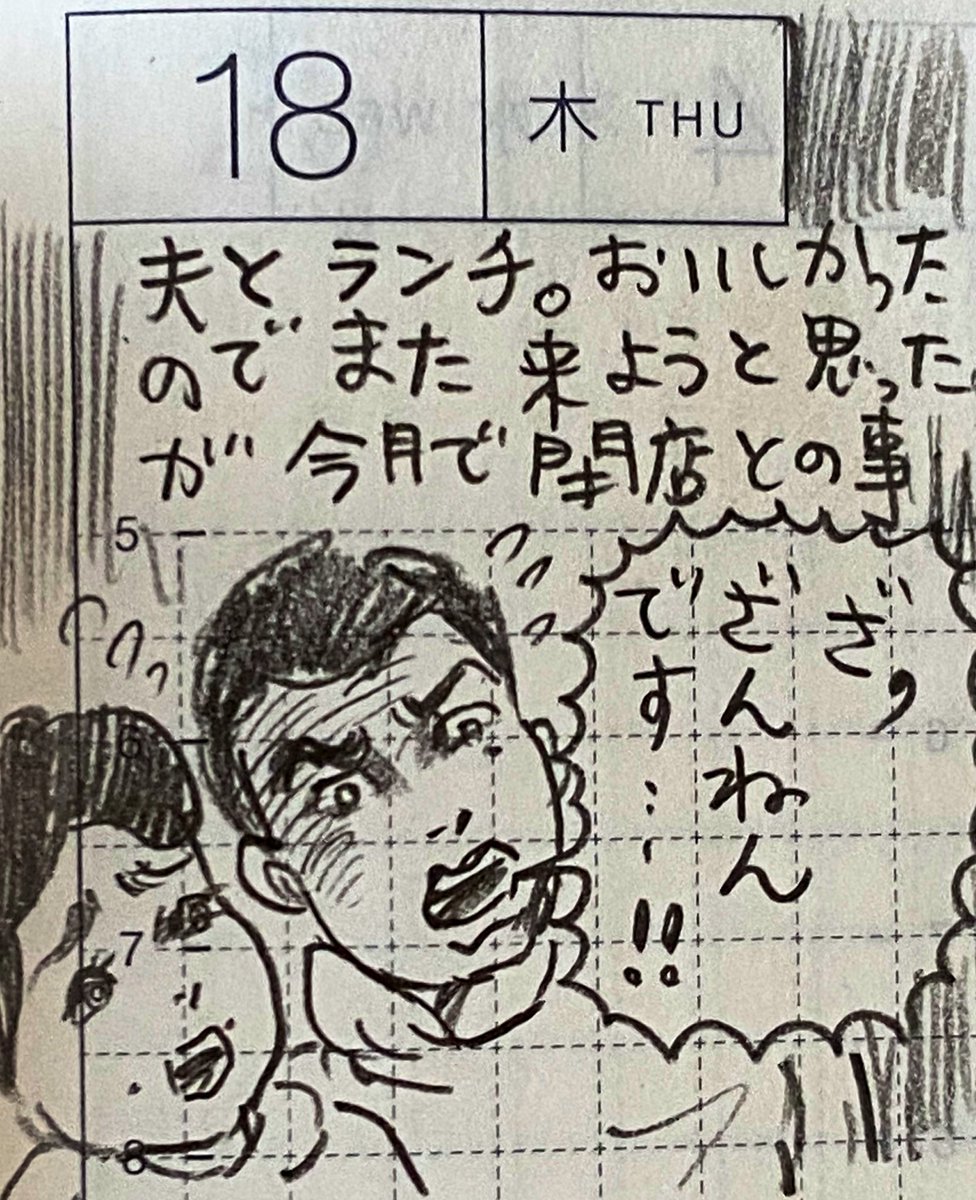 18 木 THU
夫とランチ。おいしかった
のでまた来ようと思った
が今月で閉店との事
5
6
7
8
ざ,
ざんねん
です……!!